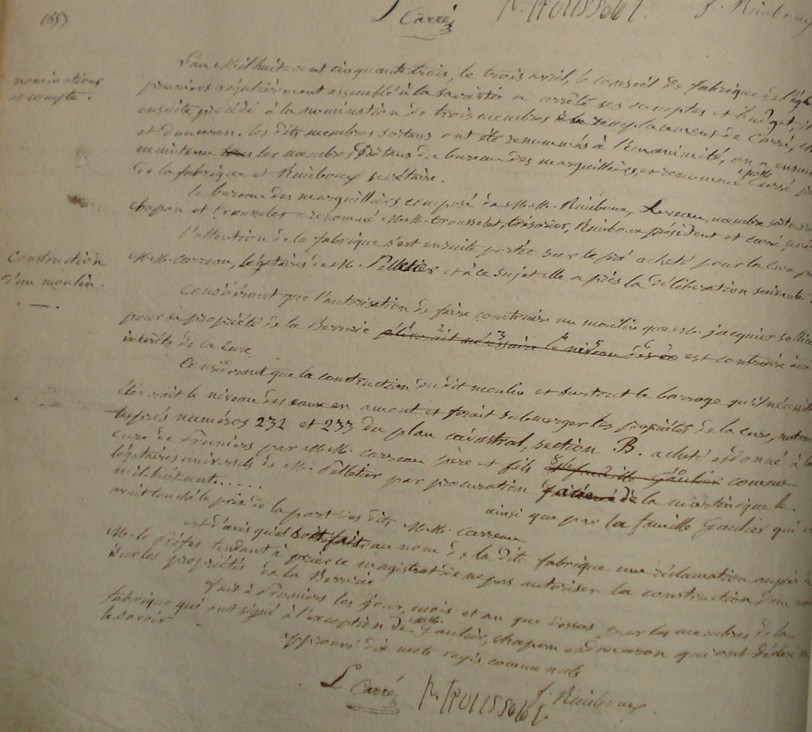 1853
L Carré P. Troussele J. Rimboux
nominations et compte.
L'an mil huit cent cinquante trois, le trois avril, le conseil de fabrique de l'
pruniers régulièrement assemblé à la sacristie a arrêté ses comptes et budget, il
ensuite procédé à la nomination de trois membres en remplacement de Carré,
et donaron. les dits membres sortans ont été renommés à l'unanimité, on a ensuite
maintenu tous les membres du bureau des marguilliers et renommé Carré
de la fabrique et Rimboux secrétaire.
le bureau des marguilliers composé de M.M. Rimboux, membre
chapon et trousselet a renommé M.M. trousselet, trésorier, Rimboux président et Carré
Construction d'un moulin.
l'attention de la fabrique s'est ensuite portée sur le pré acheté pour la cure
M.M. carreau, légataires de M. Pelletier et à ce sujet elle a pris la délibération suivante
Considérant que l'autorisation de faire construire un moulin que M. jacquier
pour sa propriété de la est contraire aux
intérêts de la cure
Considérant que la construction du dit moulin et surtout le barrage qu'il
élèverait le niveau des eaux en amont et ferait submerger les propriétés de la cure,
numéros 232 et 233 du plan cadastral, section B. acheté et donné à la
cure de Pruniers par M.M. carreau père et fils comme
légataires universels de M. Pelletier par procuration de la martinique le.
mil huit cent......
ainsi que par la famille Gaulier qui
avait touché le prix de la part des dits M.M. carreau
est d'avis qu'il soit fait au nom de la dite fabrique une réclamation auprès de
M. le préfet tendant à prier ce magistrat de ne pas autoriser la construction d'un
sur les propriétés de la
fait à Pruniers les jour, mois et an que dessus par les membres de la
fabrique qui ont signé à l'exception de Gaulier, chapon et donaron qui ont déclaré ne
le savoir
approuvé dix mots rayés comme nuls
L Carré P. Troussele J. Rimboux